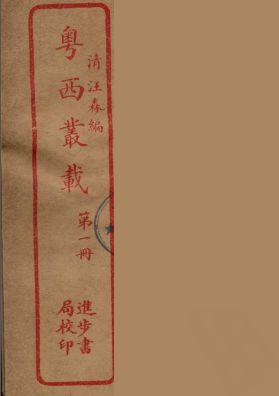 清汪森編
粵西叢載
第一冊
進步書
局校印